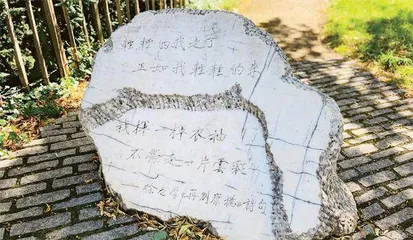 轻轻的我走了
正如我轻轻的来
我挥一挥衣袖
不带走一片云彩
徐志摩再别康桥诗句